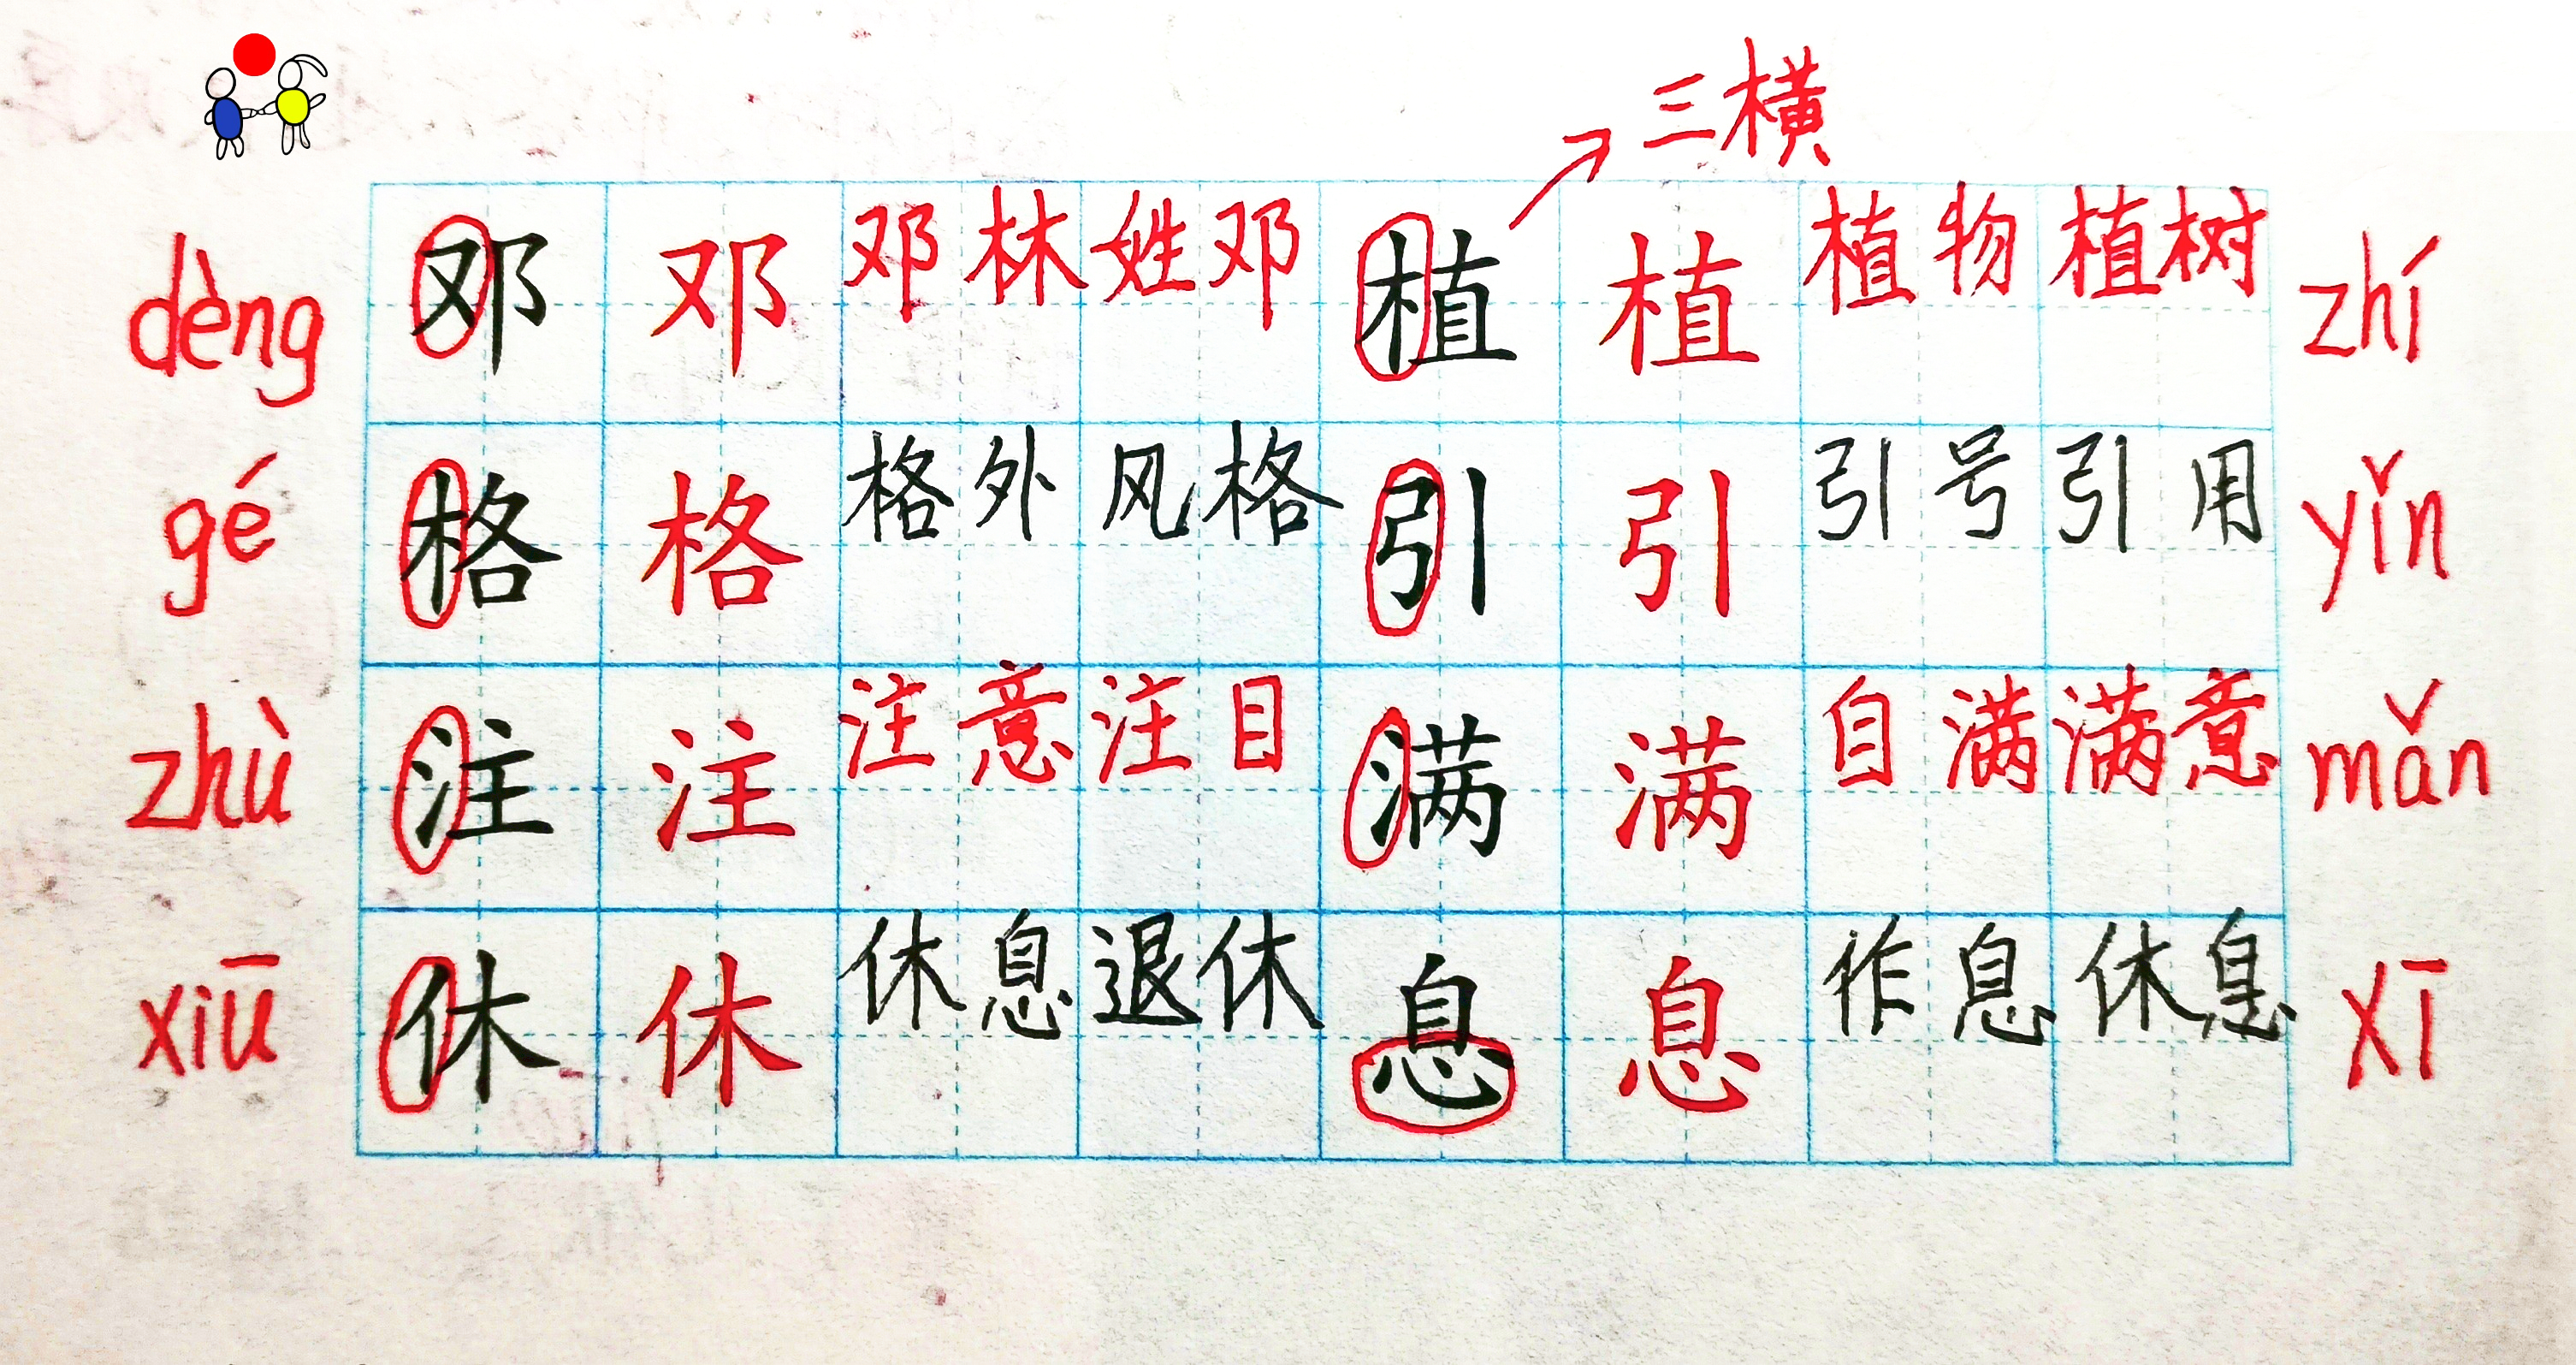 三横
dèng 邓 邓 邓林 姓邓 植 植 植物 植树 zhí
gé 格 格 格外 风格 引 引 引号 引用 yǐn
zhù 注 注 注意 注目 满 满 自满 满意 mǎn
xiū 休 休 休息 退休 息 息 作息 休息 xī